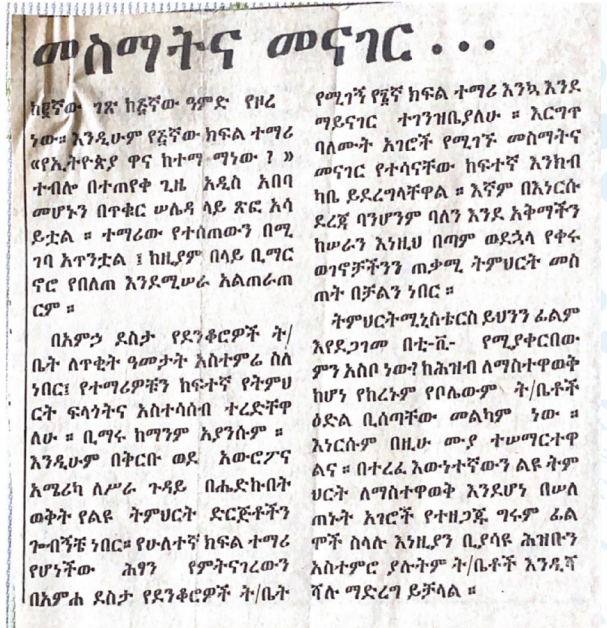 መስማትና መናገር . . .
ከ፪ኛው ገጽ ከ፭ኛው ዓምድ የዞረ
ነው። እንዲሁም የ፭ኛው ክፍል ተማሪ
«የኢትዮጵያ ዋና ከተማ ማነው ? »
ተብሎ በተጠየቀ ጊዜ አዲስ አበባ
መሆኑን በጥቁር ሠሌዳ ላይ ጽፎ አሳ
ይቷል ። ተማሪው የተሰጠውን በሚ
ገባ አጥንቷል ፤ ከዚያም በላይ ቢማር
ኖሮ የበለጠ እንደሚሠራ አልጠራጠ
ርም ።
በአምኃ ደስታ የደንቆሮዎች ት/
ቤት ለጥቂት ዓመታት አስተምሬ ስለ
ነበር፤ የተማሪዎቹን ከፍተኛ የትምህ
ርት ፍላጎትና አስተሳሰብ ተረድቸዋ
ለሁ ። ቢማሩ ከማንም አያንሱም ።
እንዲሁም በቅርቡ ወደ አውሮፖና
አሜሪካ ለሥራ ጉዳይ በሔድኩበት
ወቅት የልዩ ትምህርት ድርጅቶችን
ጐብኝቼ ነበር። የሁለተኛ ክፍል ተማሪ
የሆነችው ሕፃን የምትናገረውን
በአምሐ ደስታ የደንቆሮዎች ት/ቤት
የሚገኝ የ፯ኛ ክፍል ተማሪ እንኳ እንደ
ማይናገር ተገንዝቤያለሁ ። እርግጥ
ባለሙት አገሮች የሚገኙ መስማትና
መናገር የተሳናቸው ከፍተኛ እንክብ
ካቤ ይደረግላቸዋል ። እኛም በእነርሱ
ደረጃ ባንሆንም ባለን እንደ አቅማችን
ከሠራን እነዚህ በጣም ወደኋላ የቀሩ
ወገኖቻችንን ጠቃሚ ትምህርት መስ
ጠት በቻልን ነበር ።
ትምህርትሚኒስቴርስ ይህንን ፊልም
እየደጋገመ በቲ-ቪ- የሚያቀርበው
ምን አስቦ ነው? ከሕዝብ ለማስተዋወቅ
ከሆነ የከረኑም የቦሌውም ት/ቤቶች
ዕድል ቢሰጣቸው መልካም ነው ።
እነርሱም በዚሁ ሙያ ተሠማርተዋ
ልና ። በተረፈ እውነተኛውን ልዩ ትም
ህርት ለማስተዋወቅ እንደሆነ በሠለ
ጠኑት አገሮች የተዘጋጁ ግሩም ፊል
ሞች ስላሉ እነዚያን ቢያሳዩ ሕዝቡን
አስተምሮ ያሉትም ት/ቤቶች እንዲሻ
ሻሉ ማድረግ ይቻላል ።